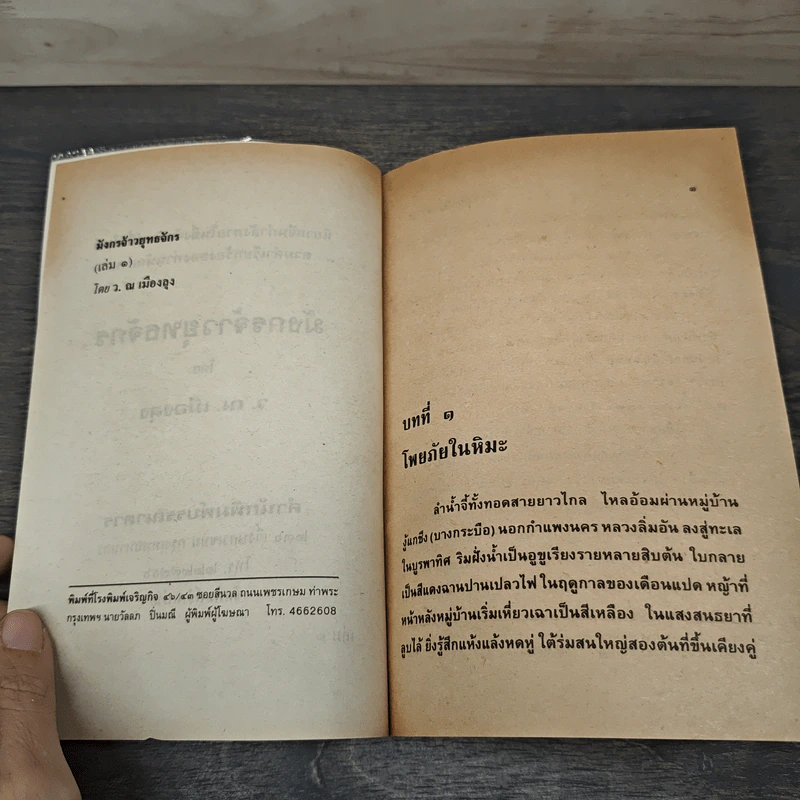 มังกรจ้าวยุทธจักร
(เล่ม ๑)
โดย ว. ณ เมืองลุง
พิมพ์ที่โรงพิมพ์เจริญกิจ ๔๖/๔๓ ซอยสีนวล ถนนเพชรเกษม ท่าพระ
กรุงเทพฯ นายวัลลภ ปิ่นมณี ผู้พิมพ์ผู้โฆษณา โทร. 4662608
บทที่ ๑
โพยภัยในหิมะ
ลำน้ำจี้ทั้งทอดสายยาวไกล ไหลอ้อมผ่านหมู่บ้าน
งู้แกชึง (บางกระบือ) นอกกำแพงนคร หลวงลิ่มอัน ลงสู่ทะเล
ในบูรพาทิศ ริมฝั่งน้ำเป็นอูขูเรียงรายหลายสิบต้น ใบกลาย
เป็นสีแดงฉานปานเปลวไฟ ในฤดูกาลของเดือนแปด หญ้าที่
หน้าหลังหมู่บ้านเริ่มเหี่ยวเฉาเป็นสีเหลือง ในแสงสนธยาที่
ลูบไล้ ยิ่งรู้สึกแห้งแล้งหดหู่ ใต้ร่มสนใหญ่สองต้นที่ขึ้นเคียงคู่